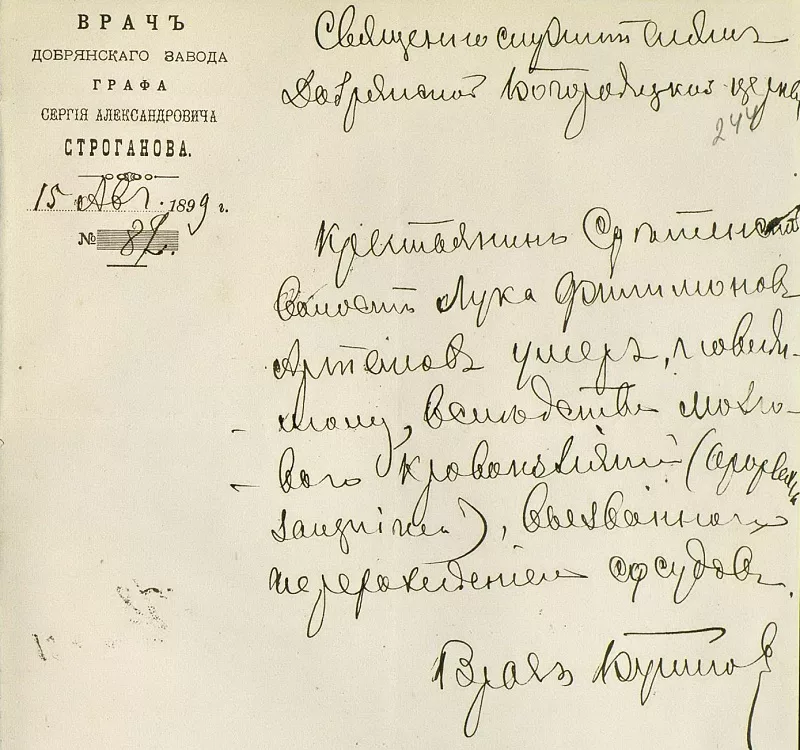 ВРАЧЪ
ДОБРЯНСКАГО ЗАВОДА
ГРАФА
СЕРГІЯ АЛЕКСАНДРОВИЧА
СТРОГАНОВА.
15 Авг. 1899 г.
№ 82.
Священнослужителямъ
Добрянской Богородицкой церкви
244
Крестьянинъ Срѣтенской
волости Лука Филимоновъ
Артемовъ умеръ, повиди-
мому, вслѣдствіе мозго-
вого кровоизліянія (apoplexia
sanguinea), вызваннаго
перерожденіемъ сосудовъ.
Врачъ